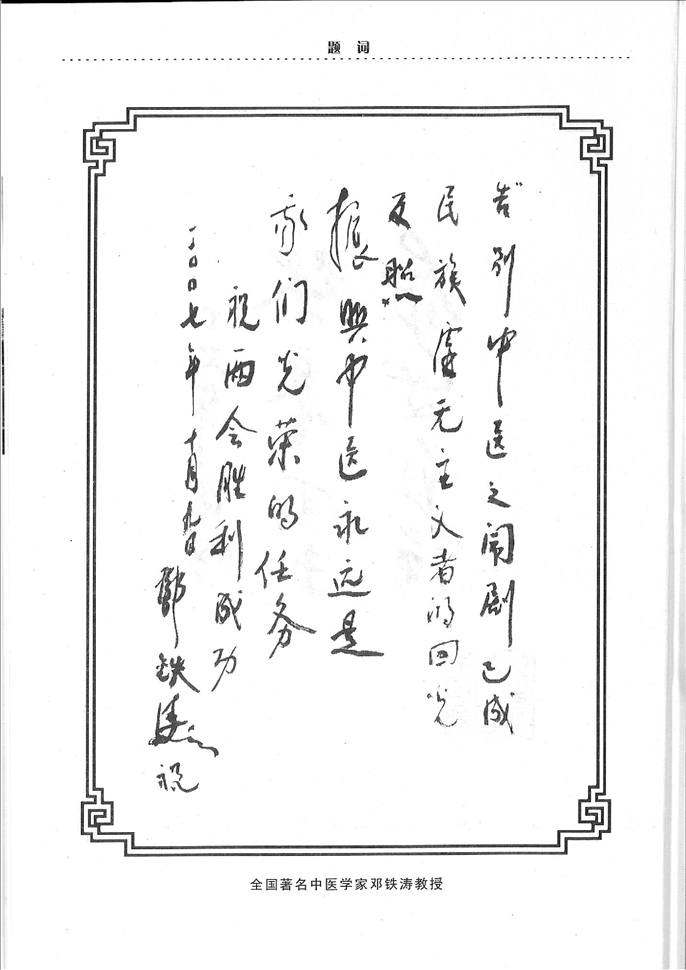 题词
告别中医之闹剧已成
民族虚无主义者的回光
反照
振興中医永远是
我们光荣的任务
祝两会胜利成功
二〇〇七年十月九日 鄧铁涛 祝
全国著名中医学家邓铁涛教授